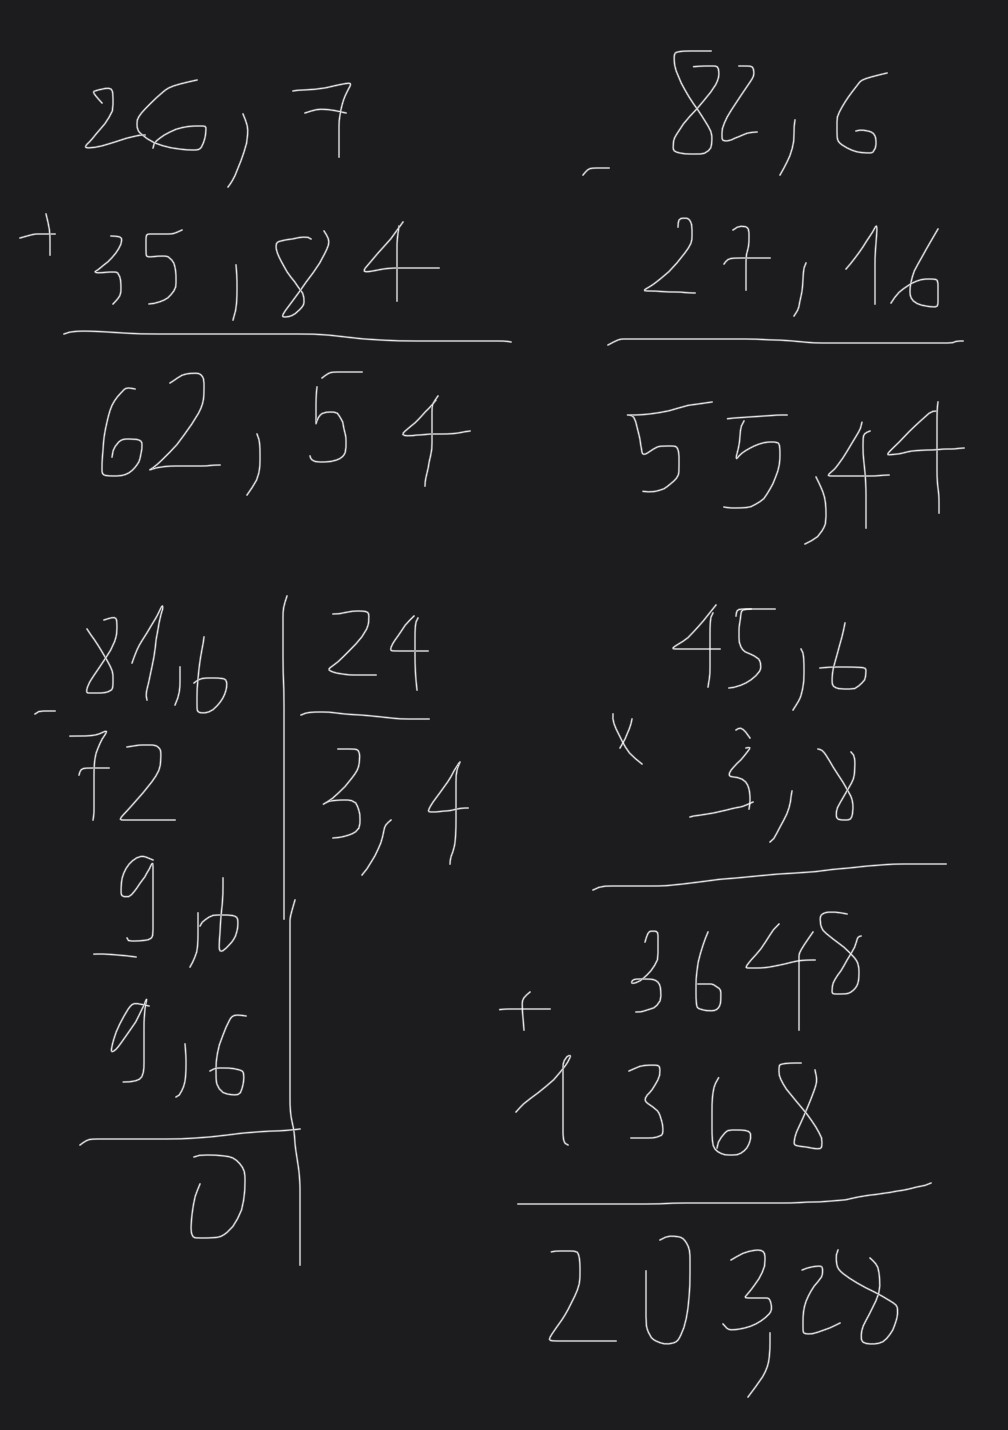 26,7
+
35,84
62,54
82,6
-
27,16
55,44
81,6 24
-
72 3,4
9,6
-
9,6
0
45,6
x
3,8
3648
+
1368
203,28